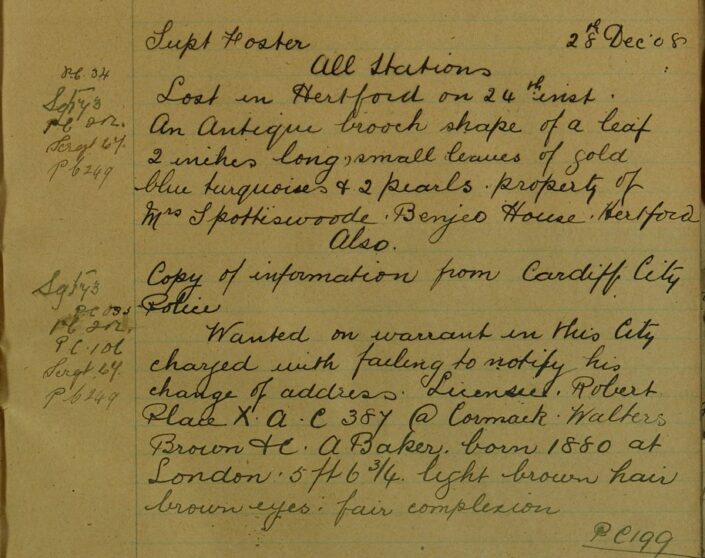 Supt Foster 28th Dec 08
All Stations
Lost in Hertford on 24th inst.
An Antique brooch shape of a leaf
2 inches long, small leaves of gold
blue turquoises & 2 pearls. property of
Mrs Spottiswoode. Bengeo House. Hertford
Also.
Copy of information from Cardiff City
Police
Wanted on warrant in this City
charged with failing to notify his
change of address. Licensee. Robert
Place X. A. C 387 @ Cormack. Walters
Brown & C. A Baker. born 1880 at
London. 5 ft 6 3/4. light brown hair
brown eyes. fair complexion
PC199
PC 34
Sgt 73
PC 202.
Sergt 67.
PC 249
Sgt 73
PC 202.
PC. 101
Sergt 67.
PC 249